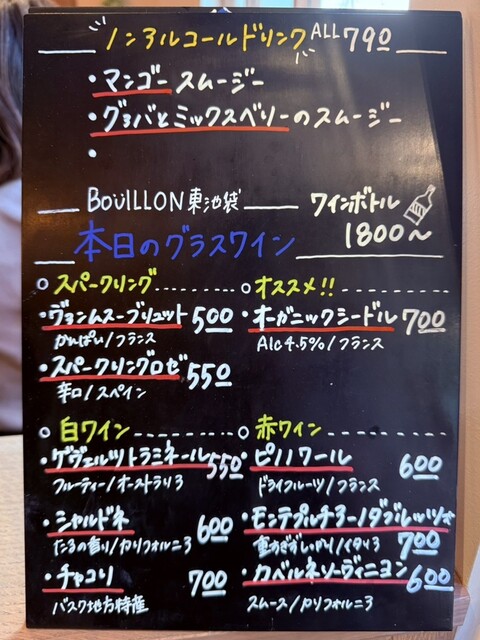 ノンアルコールドリンク ALL 790
・マンゴースムージー
・グァバとミックスベリーのスムージー
・
BOUILLON 東池袋
ワインボトル
1800〜
本日のグラスワイン
○スパークリング
・ヴァンムスーブリュット 500
かんぱい/フランス
・スパークリングロゼ 550
辛口/スペイン
○オススメ!!
・オーガニックシードル 700
Alc 4.5%/フランス
○白ワイン
・ゲヴェルツトラミネール 550
フルーティー/オーストラリア
・シャルドネ 600
たるの香り/カリフォルニア
・チャコリ 700
バスク地方特産
○赤ワイン
・ピノノワール 600
ドライフルーツ/フランス
・モンテプルチアーノダブルッツォ
重すぎずしっかり/イタリア 700
・カベルネソーヴィニヨン 600
スムース/カリフォルニア